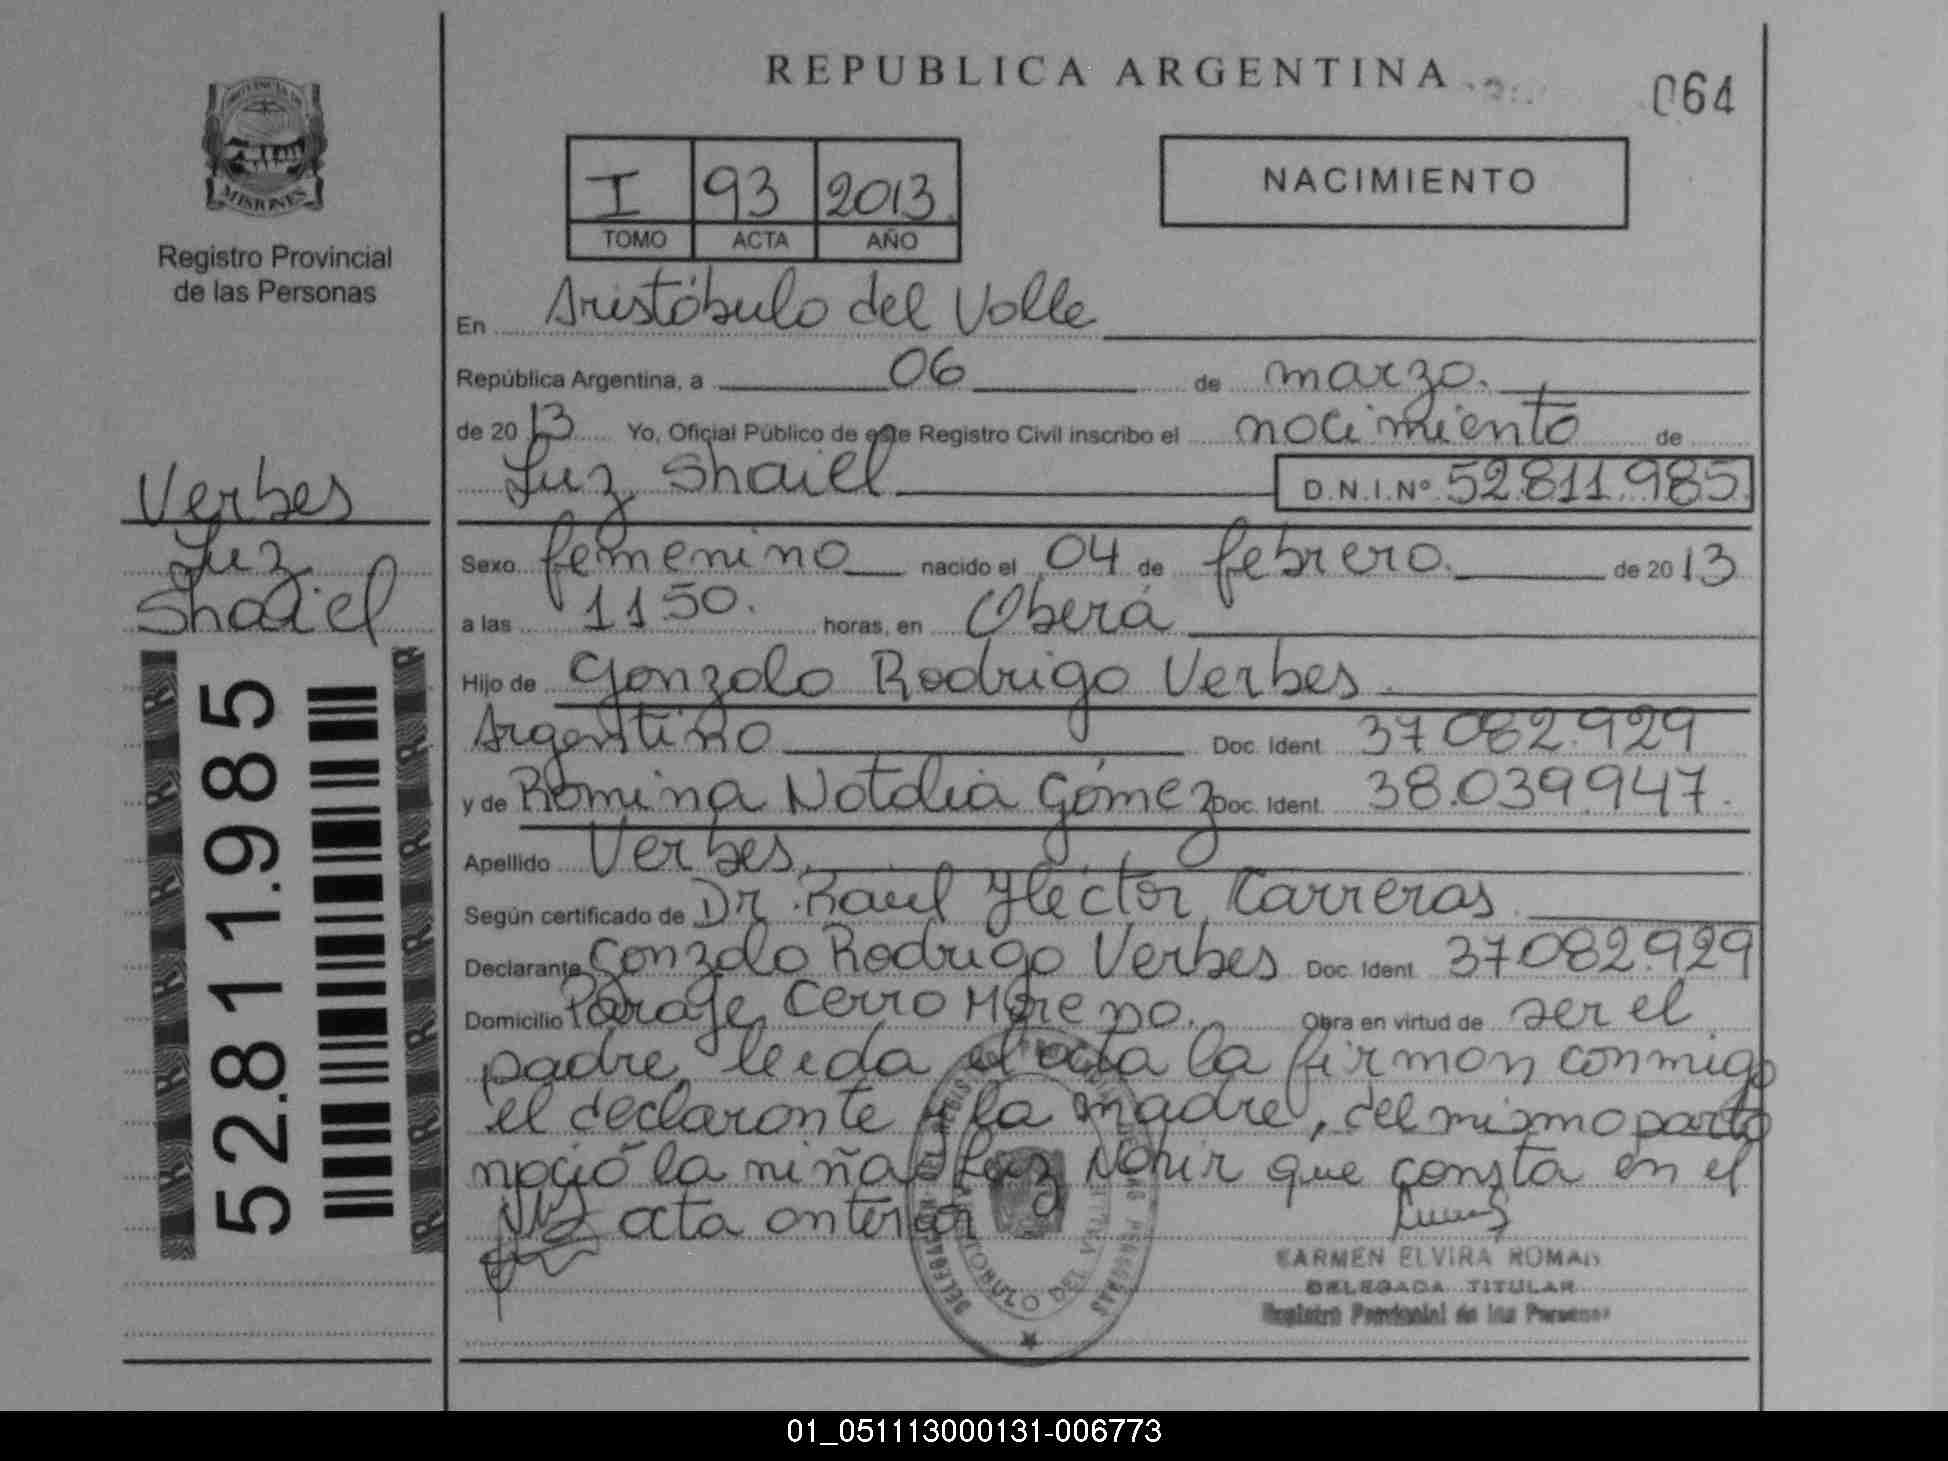 REPUBLICA ARGENTINA
064
PROVINCIA DE
MISIONES
Registro Provincial
de las Personas
I 93 2013
TOMO ACTA AÑO
NACIMIENTO
En Aristóbulo del Valle
República Argentina, a 06 de marzo.
de 2013 Yo, Oficial Público de este Registro Civil inscribo el nacimiento de
Luz Shaiel D.N.I.Nº 52.811.985
Verbes
Luz
Shaiel
52.811.985
Sexo femenino nacido el 04 de febrero. de 2013
a las 1150. horas, en Oberá
Hijo de Gonzalo Rodrigo Verbes
Argentino Doc. Ident. 37.082.929
y de Romina Natalia Gómez Doc. Ident. 38.039.947.
Apellido Verbes.
Según certificado de Dr. Raúl Héctor Carreras
Declarante Gonzalo Rodrigo Verbes Doc. Ident. 37.082.929
Domicilio Paraje Cerro Moreno. Obra en virtud de ser el
padre, leida el acta la firman conmigo
el declarante y la madre, del mismo parto
nació la niña Luz que consta en el
acta anterior
CARMEN ELVIRA ROMAN
DELEGADA TITULAR
Registro Provincial de las Personas
01_051113000131-006773